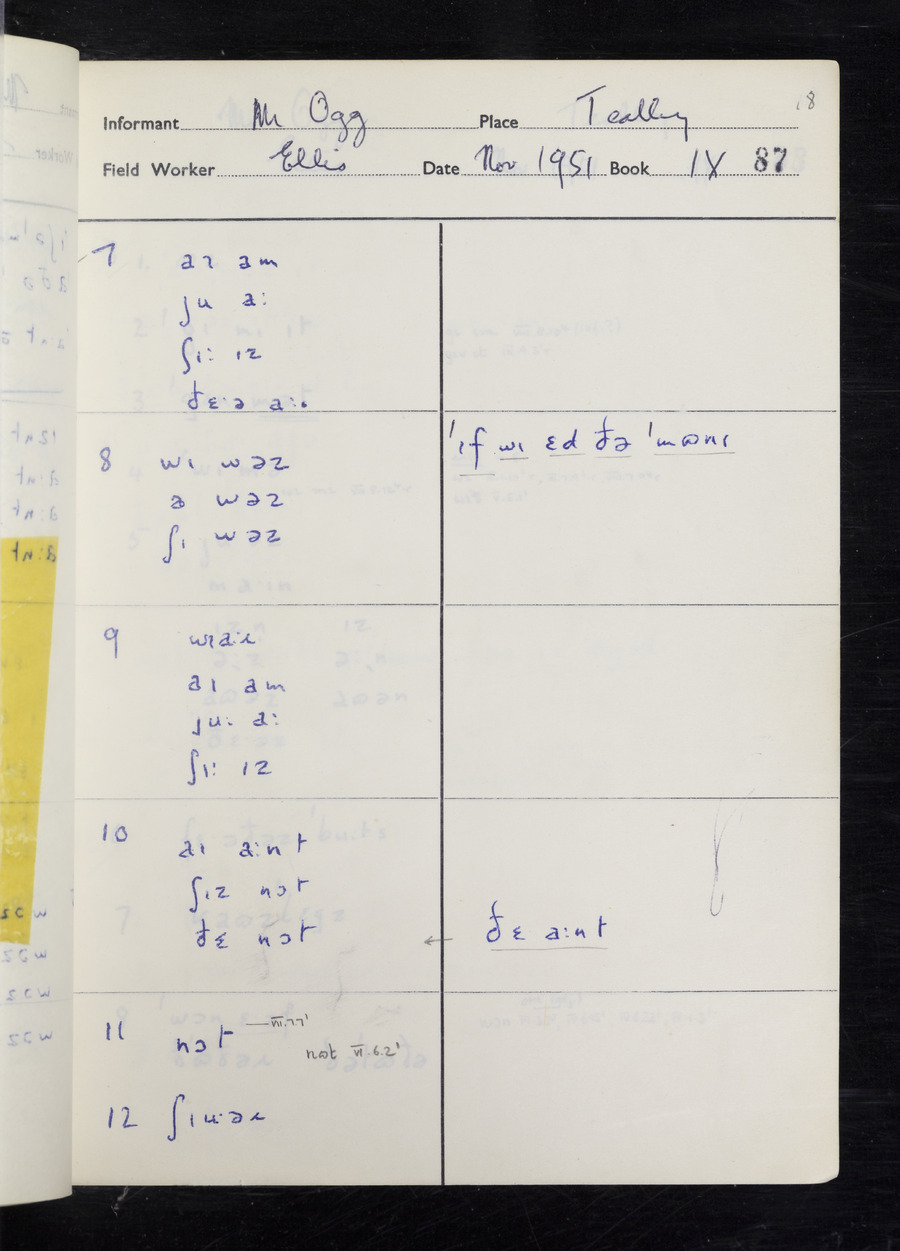 18
Informant Mr Ogg Place Tealby
Field Worker Ellis Date Nov 1951 Book IX 87
7 aɪ am
ju a:
ʃɪ: ɪz
ðɛ:ə a:
8 wɪ wəz
ə wəz
ʃɪ wəz
'ɪf wɪ ɛd ðə 'mʊnɪ
9
aɪ am
ju: a:
ʃɪ: ɪz
10 aɪ a:nt
ʃɪz nɔt
ðɛ nɔt ← ðɛ a:nt
11 nɔt — VII.7.7'
nɒt VI.6.2'
12 ʃɪu:əɹ